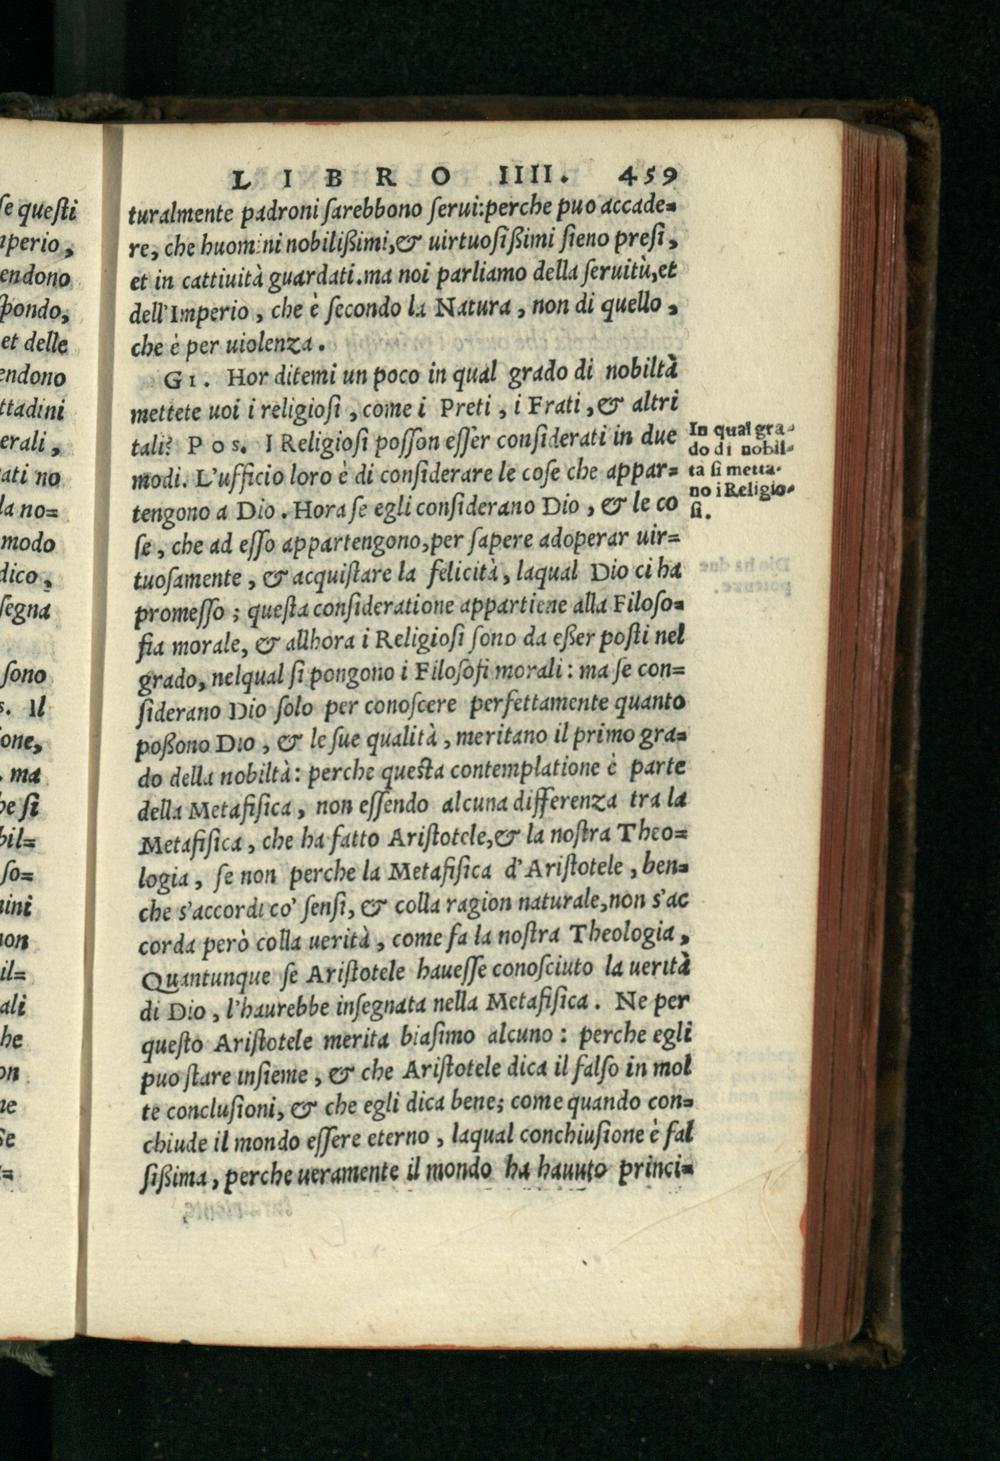 LIBRO IIII. 459
turalmente padroni ſarebbono ſerui:perche puo accade=
re, che huomini nobilißimi,& uirtuoſißimi ſieno preſi,
et in cattiuità guardati.ma noi parliamo della ſeruitù,et
dell'Imperio, che è ſecondo la Natura, non di quello,
che è per uiolenza.
GI. Hor ditemi un poco in qual grado di nobiltà
mettete uoi i religioſi, come i Preti, i Frati, & altri
tali? Pos. I Religioſi poſſon eſſer conſiderati in due
modi. L'ufficio loro è di conſiderare le coſe che appar=
tengono a Dio. Hora ſe egli conſiderano Dio, & le co
ſe, che ad eſſo appartengono,per ſapere adoperar uir=
tuoſamente, & acquiſtare la felicità, laqual Dio ci ha
promeſſo; queſta conſideratione appartiene alla Filoſo=
fia morale, & allhora i Religioſi ſono da eßer poſti nel
grado, nelqual ſi pongono i Filoſofi morali: ma ſe con=
ſiderano Dio ſolo per conoſcere perfettamente quanto
poßono Dio, & le ſue qualità, meritano il primo gra=
do della nobiltà: perche queſta contemplatione è parte
della Metafiſica, non eſſendo alcuna differenza tra la
Metafiſica, che ha fatto Ariſtotele,& la noſtra Theo=
logia, ſe non perche la Metafiſica d'Ariſtotele, ben=
che s'accordi co' ſenſi, & colla ragion naturale,non s'ac
corda però colla uerità, come fa la noſtra Theologia,
Quantunque ſe Ariſtotele haueſſe conoſciuto la uerità
di Dio, l'haurebbe inſegnata nella Metafiſica. Ne per
queſto Ariſtotele merita biaſimo alcuno: perche egli
puo ſtare inſieme, & che Ariſtotele dica il falſo in mol
te concluſioni, & che egli dica bene; come quando con=
chiude il mondo eſſere eterno, laqual conchiuſione è fal
ſißima, perche ueramente il mondo ha hauuto princi=
In qual gra-
do di nobil-
tà ſi metta-
no i Religio-
ſi.
ſe queſti
mperio,
endono
ſpondo,
et delle
endono
ttadini
erali,
ati no
la no=
modo
dico,
ſegna
ſono
s. Il
one,
. ma
he ſi
bil=
ſo=
mini
non
il=
ali
he
on
ne
Se